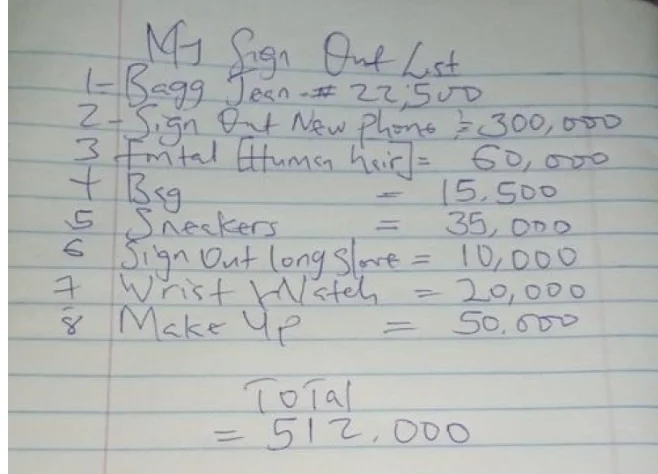 My Sign Out List
1- Bagg Jean - # 22,500
2- Sign Out New Phone = 300,000
3 Frntal [Human hair] = 60,000
4 Bag = 15.500
5 Sneakers = 35,000
6 Sign Out long Slove = 10,000
7 Wrist Watch = 20,000
8 Make Up = 50.000
ToTal
= 512.000